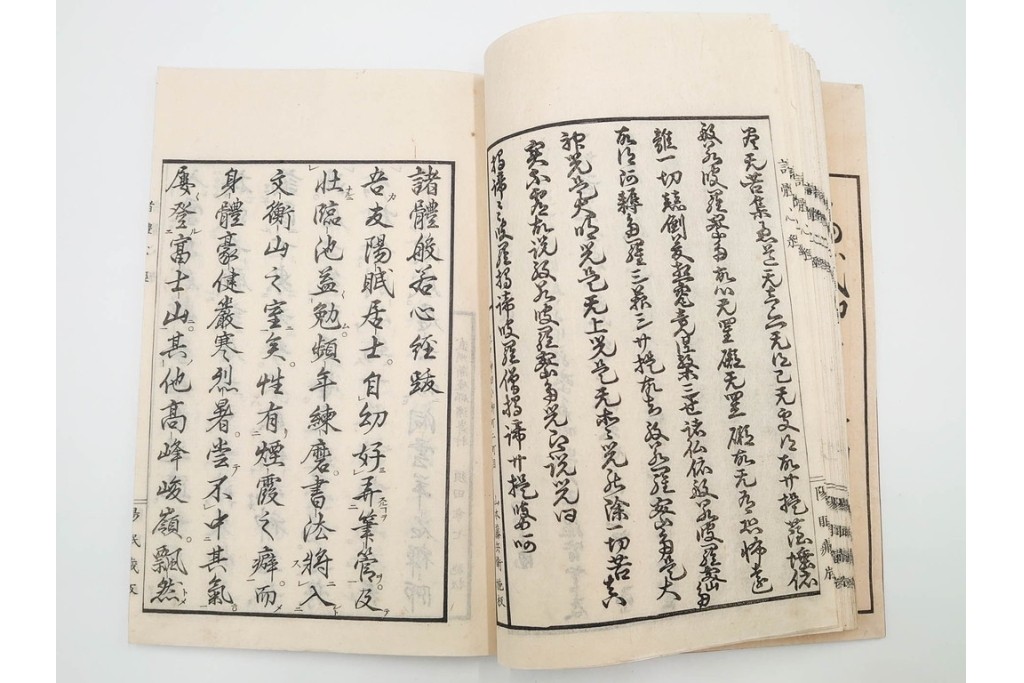 尽无苦集滅道无智亦无得已无所得故卄提薩埵依
般若波羅蜜多故心无罣礙无罣礙故无有恐怖遠
離一切顛倒夢想究竟涅槃三世諸仏依般若波羅蜜多
故得阿耨多羅三藐三卄提故知般若波羅蜜多是大
神咒是大明咒是无上咒是无等々咒能除一切苦真
実不虚故説般若波羅蜜多咒即説咒曰
揭諦々々波羅揭諦波羅僧揭諦卄提娑婆呵
諸體般若心経跋
吾友陽眠居士。自幼好弄筆管。及
壮臨池益勉。頻年練磨。書法將入
文衡山之室矣。性有煙霞之癖。而
身體豪健。嚴寒烈暑。嘗不中其氣。
屡登富士山。其他高峰峻嶺。飄然